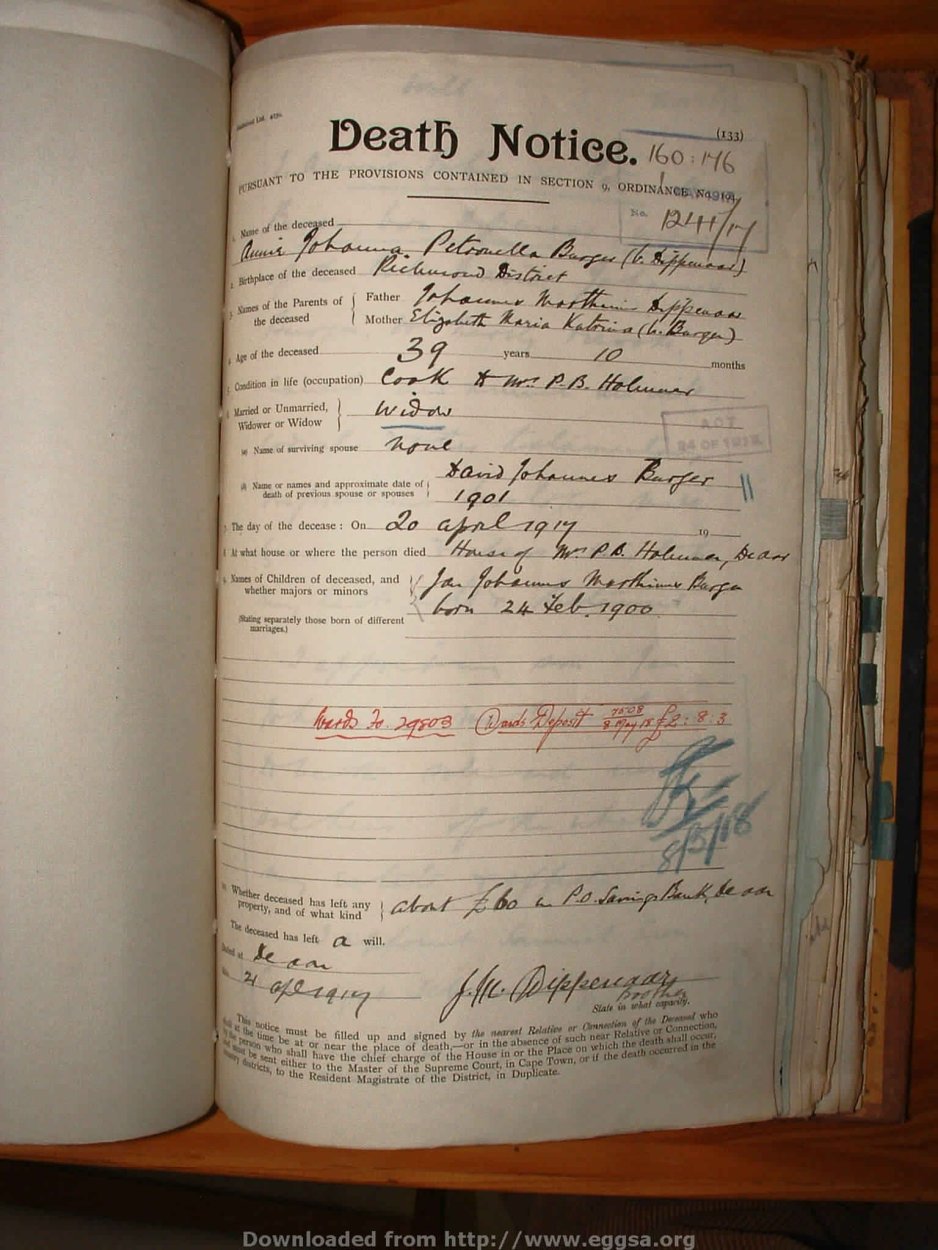 (133)
Death Notice.
160:176
PURSUANT TO THE PROVISIONS CONTAINED IN SECTION 9, ORDINANCE No.
No. 1241/17
1. Name of the deceased
Annie Johanna Petronella Burger (b. Dippenaar)
2. Birthplace of the deceased Richmond District
3. Names of the Parents of the deceased
Father Johannes Marthinus Dippenaar
Mother Elizabeth Maria Katrina (b. Burger)
4. Age of the deceased 39 years 10 months
5. Condition in life (occupation) Cook to Mrs P.B.
6. Married or Unmarried, Widower or Widow
Widow
ACT
24 OF
(a) Name of surviving spouse none
(b) Name or names and approximate date of death of previous spouse or spouses
David Johannes Burger
1901
7. The day of the decease: On 20 April 1917 19
8. At what house or where the person died House of Mrs P.B. De Aar
9. Names of Children of deceased, and whether majors or minors
Jan Johannes Marthinus Burger
born 24 Feb. 1900
(Stating separately those born of different marriages.)
Wards Fo. 29803 Wards Deposit 7508 8 May 18 £2:8.3
8/5/18
10. Whether deceased has left any property, and of what kind
about £60 in P.O. Savings Bank, De Aar
The deceased has left a will.
Dated at De Aar
21 Apl 1917
J.M. Dippenaar
brother
State in what capacity.
This notice must be filled up and signed by the nearest Relative or Connection of the Deceased who
shall at the time be at or near the place of death,—or in the absence of such near Relative or Connection,
by the person who shall have the chief charge of the House in or the Place on which the death shall occur,
and must be sent either to the Master of the Supreme Court, in Cape Town, or if the death occurred in the
country districts, to the Resident Magistrate of the District, in Duplicate.
Downloaded from http://www.eggsa.org